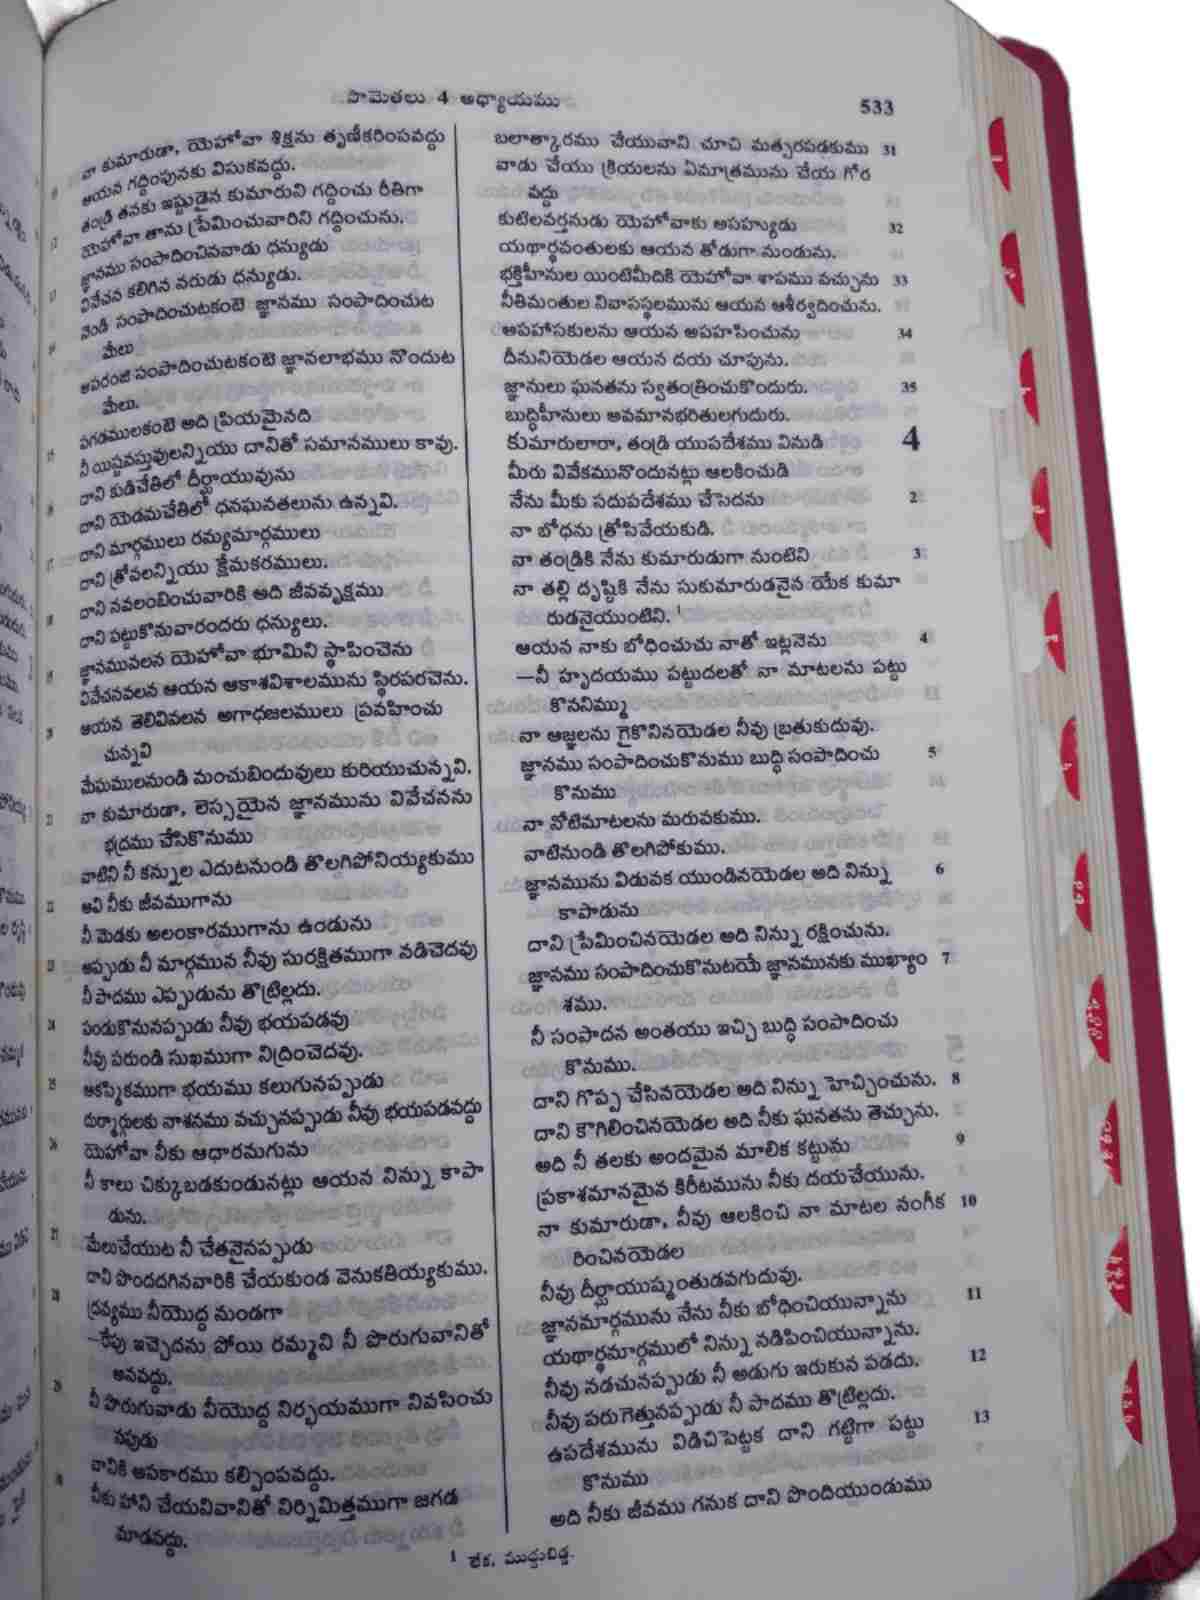 సామెతలు 4 అధ్యాయము
533
నా కుమారుడా, యెహోవా శిక్షను తృణీకరింపవద్దు
ఆయన గద్దింపునకు విసుకవద్దు.
తండ్రి తనకు ఇష్టుడైన కుమారుని గద్దించు రీతిగా
12
యెహోవా తాను ప్రేమించువారిని గద్దించును.
జ్ఞానము సంపాదించినవాడు ధన్యుడు
13
వివేచన కలిగిన నరుడు ధన్యుడు.
వెండి సంపాదించుటకంటె జ్ఞానము సంపాదించుట
14
మేలు
అపరంజి సంపాదించుటకంటె జ్ఞానలాభము నొందుట
మేలు.
పగడములకంటె అది ప్రియమైనది
15
నీ యిష్టవస్తువులన్నియు దానితో సమానములు కావు.
దాని కుడిచేతిలో దీర్ఘాయువును
16
దాని యెడమచేతిలో ధనఘనతలును ఉన్నవి.
దాని మార్గములు రమ్యమార్గములు
17
దాని త్రోవలన్నియు క్షేమకరములు.
దాని నవలంబించువారికి అది జీవవృక్షము
18
దాని పట్టుకొనువారందరు ధన్యులు.
జ్ఞానమువలన యెహోవా భూమిని స్థాపించెను
19
వివేచనవలన ఆయన ఆకాశవిశాలమును స్థిరపరచెను.
ఆయన తెలివివలన అగాధజలములు ప్రవహించు
20
చున్నవి
మేఘములనుండి మంచుబిందువులు కురియుచున్నవి.
నా కుమారుడా, లెస్సయైన జ్ఞానమును వివేచనను
21
భద్రము చేసికొనుము
వాటిని నీ కన్నుల ఎదుటనుండి తొలగిపోనియ్యకుము
అవి నీకు జీవముగాను
22
నీ మెడకు అలంకారముగాను ఉండును
అప్పుడు నీ మార్గమున నీవు సురక్షితముగా నడిచెదవు
23
నీ పాదము ఎప్పుడును తొట్రిల్లదు.
పండుకొనునప్పుడు నీవు భయపడవు
24
నీవు పరుండి సుఖముగా నిద్రించెదవు.
ఆకస్మికముగా భయము కలుగునప్పుడు
25
దుర్మార్గులకు నాశనము వచ్చునప్పుడు నీవు భయపడవద్దు
యెహోవా నీకు ఆధారమగును
26
నీ కాలు చిక్కుబడకుండునట్లు ఆయన నిన్ను కాపా
డును.
మేలుచేయుట నీ చేతనైనప్పుడు
27
దాని పొందదగినవారికి చేయకుండ వెనుకతియ్యకుము.
ద్రవ్యము నీయొద్ద నుండగా
28
—రేపు ఇచ్చెదను పోయి రమ్మని నీ పొరుగువానితో
అనవద్దు.
నీ పొరుగువాడు నీయొద్ద నిర్భయముగా నివసించు
29
నపుడు
వానికి అపకారము కల్పింపవద్దు.
నీకు హాని చేయనివానితో నిర్నిమిత్తముగా జగడ
30
మాడవద్దు.
బలాత్కారము చేయువాని చూచి మత్సరపడకుము 31
వాడు చేయు క్రియలను ఏమాత్రమును చేయ గోర
వద్దు
కుటిలవర్తనుడు యెహోవాకు అసహ్యుడు 32
యథార్థవంతులకు ఆయన తోడుగా నుండును.
భక్తిహీనుల యింటిమీదికి యెహోవా శాపము వచ్చును 33
నీతిమంతుల నివాసస్థలమును ఆయన ఆశీర్వదించును.
అపహాసకులను ఆయన అపహసించును 34
దీనునియెడల ఆయన దయ చూపును.
జ్ఞానులు ఘనతను స్వతంత్రించుకొందురు. 35
బుద్ధిహీనులు అవమానభరితులగుదురు.
కుమారులారా, తండ్రి యుపదేశము వినుడి 4
మీరు వివేకమునొందునట్లు ఆలకించుడి
నేను మీకు సదుపదేశము చేసెదను 2
నా బోధను త్రోసివేయకుడి.
నా తండ్రికి నేను కుమారుడుగా నుంటిని 3
నా తల్లి దృష్టికి నేను సుకుమారుడనైన యేక కుమా
రుడనైయుంటిని. 1
ఆయన నాకు బోధించుచు నాతో ఇట్లనెను 4
—నీ హృదయము పట్టుదలతో నా మాటలను పట్టు
కొననిమ్ము
నా ఆజ్ఞలను గైకొనినయెడల నీవు బ్రతుకుదువు.
జ్ఞానము సంపాదించుకొనుము బుద్ధి సంపాదించు 5
కొనుము
నా నోటిమాటలను మరువకుము.
వాటినుండి తొలగిపోకుము.
జ్ఞానమును విడువక యుండినయెడల అది నిన్ను 6
కాపాడును
దాని ప్రేమించినయెడల అది నిన్ను రక్షించును.
జ్ఞానము సంపాదించుకొనుటయే జ్ఞానమునకు ముఖ్యాం 7
శము.
నీ సంపాదన అంతయు ఇచ్చి బుద్ధి సంపాదించు
కొనుము.
దాని గొప్ప చేసినయెడల అది నిన్ను హెచ్చించును. 8
దాని కౌగిలించినయెడల అది నీకు ఘనతను తెచ్చును.
అది నీ తలకు అందమైన మాలిక కట్టును 9
ప్రకాశమానమైన కిరీటమును నీకు దయచేయును.
నా కుమారుడా, నీవు ఆలకించి నా మాటల నంగీక 10
రించినయెడల
నీవు దీర్ఘాయుష్మంతుడవగుదువు.
జ్ఞానమార్గమును నేను నీకు బోధించియున్నాను 11
యథార్థమార్గములో నిన్ను నడిపించియున్నాను.
నీవు నడచునప్పుడు నీ అడుగు ఇరుకున పడదు. 12
నీవు పరుగెత్తునప్పుడు నీ పాదము తొట్రిల్లదు.
ఉపదేశమును విడిచిపెట్టక దాని గట్టిగా పట్టు 13
కొనుము
అది నీకు జీవము గనుక దాని పొందియుండుము
1 లేక, ముద్దుబిడ్డ.